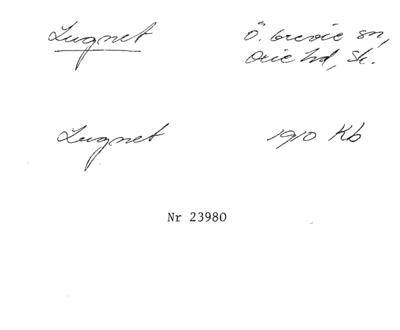 Lugnet
Ö. Grevie sn,
Oxie hd, Sk.
Lugnet
1910 Kb
Nr 23980